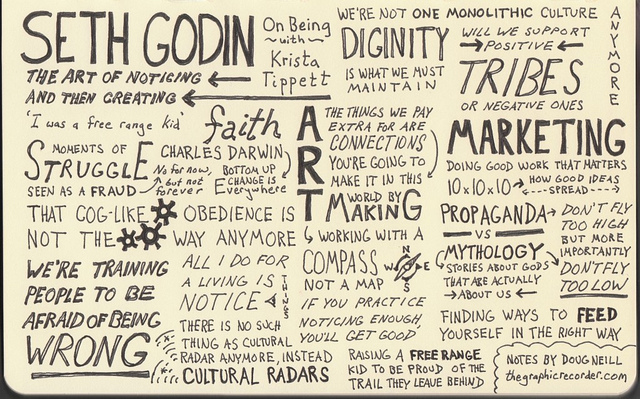 SETH GODIN
THE ART OF NOTICING
AND THEN CREATING
On Being
~with~
Krista
Tippett
WE'RE NOT ONE MONOLITHIC CULTURE
ANYMORE
DIGINITY
IS WHAT WE MUST
MAINTAIN
WILL WE SUPPORT
POSITIVE
TRIBES
OR NEGATIVE ONES
'I was a free range kid'
MOMENTS OF
STRUGGLE
SEEN AS A FRAUD
faith
CHARLES DARWIN
No for now,
but not
forever
BOTTOM UP
CHANGE IS
Everywhere
THAT COG-LIKE OBEDIENCE IS
NOT THE WAY ANYMORE
ART
THE THINGS WE PAY
EXTRA FOR ARE
CONNECTIONS
YOU'RE GOING TO
MAKE IT IN THIS
WORLD BY
MAKING
MARKETING
DOING GOOD WORK THAT MATTERS
10x10x10
HOW GOOD IDEAS
SPREAD
PROPAGANDA
VS
MYTHOLOGY
STORIES ABOUT GODS
THAT ARE ACTUALLY
ABOUT US
DON'T FLY
TOO HIGH
BUT MORE
IMPORTANTLY
DON'T FLY
TOO LOW
WE'RE TRAINING
PEOPLE TO BE
AFRAID OF BEING
WRONG
ALL I DO FOR
A LIVING IS
NOTICE
THINGS
THERE IS NO SUCH
THING AS CULTURAL
RADAR ANYMORE, INSTEAD
CULTURAL RADARS
WORKING WITH A
COMPASS
N
W E
S
NOT A MAP
IF YOU PRACTICE
NOTICING ENOUGH,
YOU'LL GET GOOD
RAISING A FREE RANGE
KID TO BE PROUD OF THE
TRAIL THEY LEAVE BEHIND
FINDING WAYS TO FEED
YOURSELF IN THE RIGHT WAY
NOTES BY DOUG NEILL
thegraphicrecorder.com